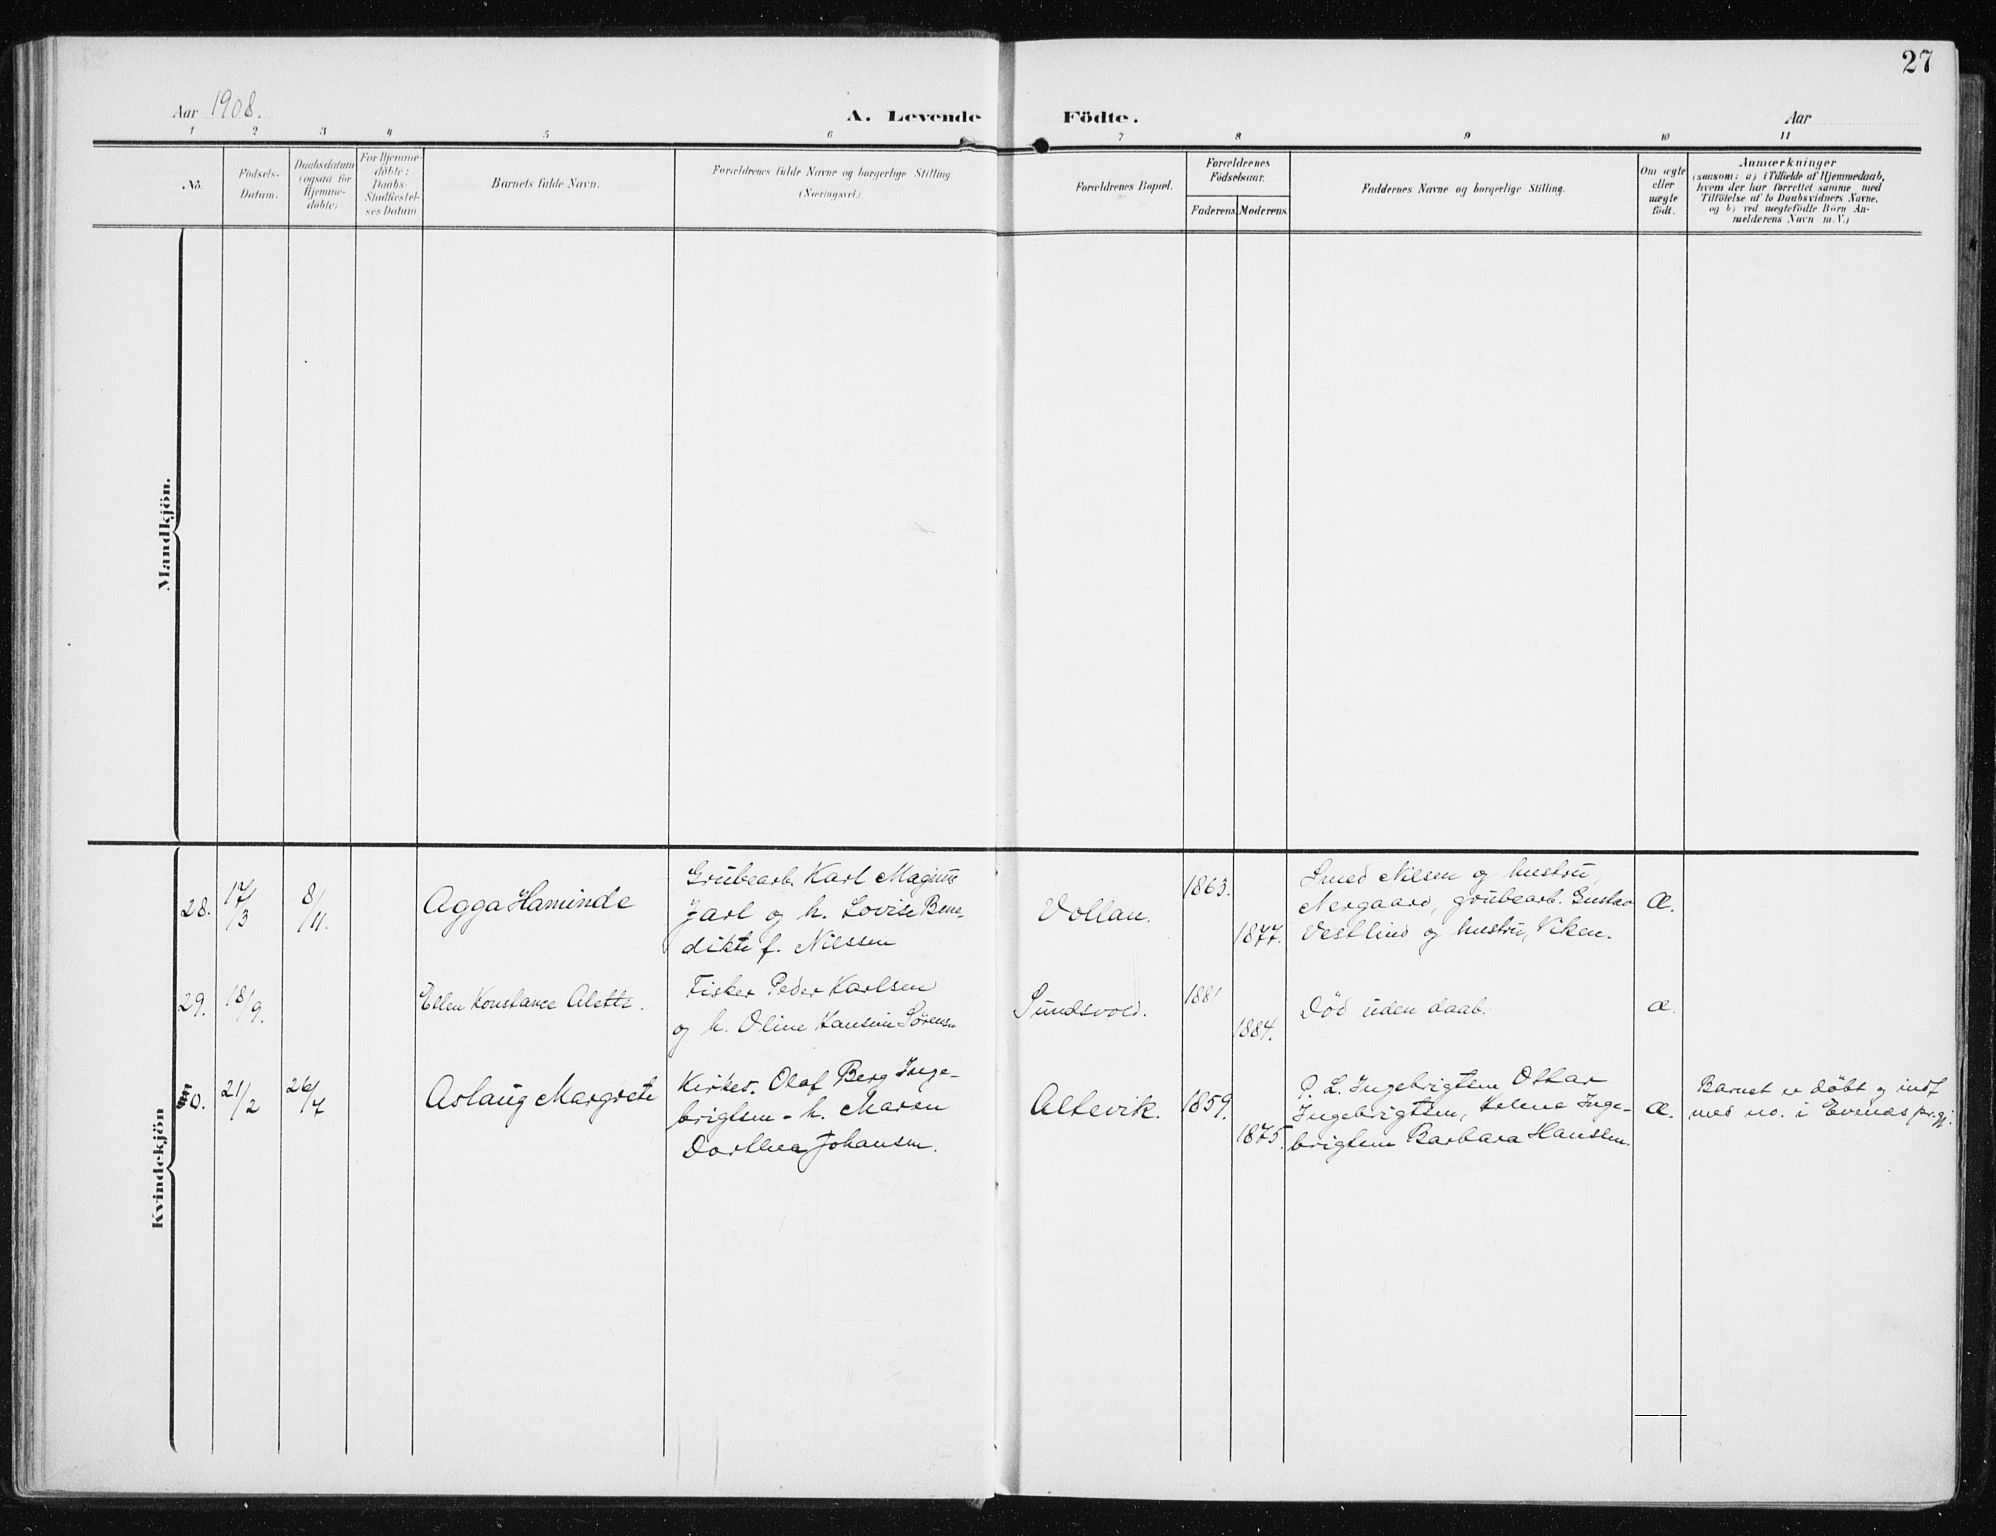 27
Aar 1908.
A. Levende Födte.
Aar
1 2 3 4 5 6 7 8 9 10 11
No.
Födsels-
Datum.
Daabsdatum
(ogsaa for
Hjemme-
döbte)
For Hjemme-
döbte:
Daabs-
Stadfæstel-
ses Datum
Barnets fulde Navn.
Forældrenes fulde Navne og borgerlige Stilling
(Næringsvei.)
Forældrenes Bopæl.
Forældrenes
Födselsaar.
Faderens.
Moderens.
Faddernes Navne og borgerlige Stilling.
Om ægte
eller
uægte
födt.
Anmærkninger
(saasom: a) i Tilfælde af Hjemmedaab,
hvem der har forrettet samme med
Tilföielse af to Daabsvidners Navne,
og b) ved uægtefödte Börn An-
melderens Navn m. V.)
Mandkjön.
Kvindekjön
28.
17/3
8/11.
Agga Haminde
Grubearb. Karl Magnus
Jarl og h. Lovise Bene
dikte f. Nilssen
Vollan.
1863.
1877.
Smed Nilsen og hustru,
Nergaard, grubearb. Gustav
Vestlind og hustru, Viken.
Æ.
29.
18/9.
Ellen Konstance Alette.
Fisker Peder Karlsen
og h. Oline Hansine Sørensen
Sundsvold.
1881
1884.
Død uden daab.
Æ.
30.
21/2
26/7
Aslaug Margrete
Kirkes. Olaf Berg Inge-
brigtsen - h. Maren
Dorthea Johansen.
Altevik.
1859.
1875.
P. L. Ingebrigtsen Oskar
Ingebrigtsen, Helene Inge-
brigtsen Barbara Hanssen.
Æ.
Barnet er døbt og indf
med no. i Evenes pr.gj.